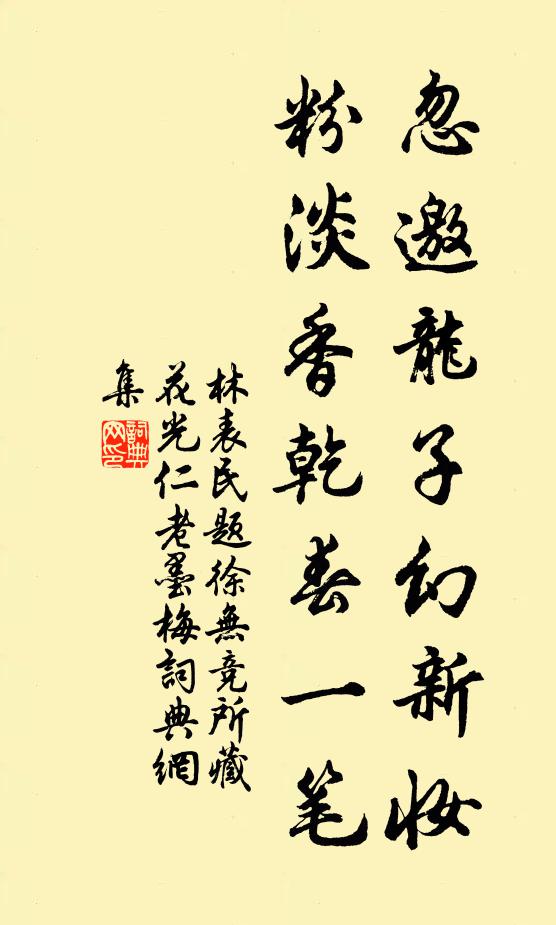 忽邀龍子幻新妝
粉淡香乾春一笔
林表民题徐無竞所藏
花光仁老墨梅詞典網
集
詞典网印